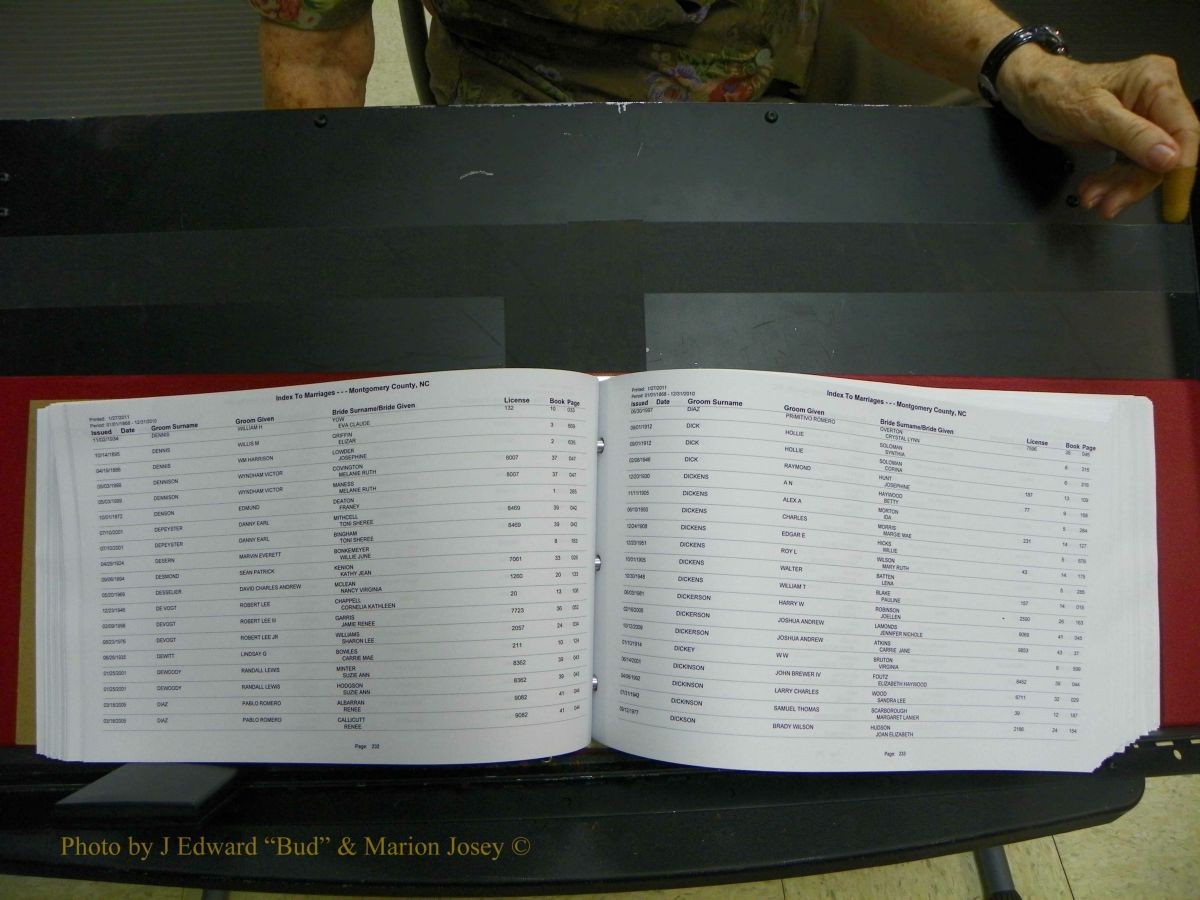 Index To Marriages - - - Montgomery County, NC
Printed: 1/27/2011
Period: 01/01/1868 - 12/31/2010
Issued Date Groom Surname Groom Given Bride Surname/Bride Given License Book Page
11/02/1934 DENNIS WILLIAM H YOW 132 10 033
EVA CLAUDE
10/14/1895 DENNIS WILLIS M GRIFFIN 3
ELIZAR
04/19/1886 DENNIS WM HARRISON LOWDER 2
JOSEPHINE
DENNISON WYNDHAM VICTOR COVINGTON 6007 37 047
MELANIE RUTH
DENNISON WYNDHAM VICTOR MANESS 6007 37 047
MELANIE RUTH
10/01/1872 DENSON EDMUND DEATON 1 265
FRANEY
07/10/2001 DEPEYSTER DANNY EARL MITHCELL 8469 39 042
TONI SHEREE
07/10/2001 DEPEYSTER DANNY EARL BINGHAM 8469 39 042
TONI SHEREE
04/29/1924 DESERN MARVIN EVERETT BONKEMEYER 8 183
WILLIE JUNE
09/06/1994 DESMOND SEAN PATRICK KENION 7061 33 026
KATHY JEAN
05/20/1969 DESSELIER DAVID CHARLES ANDREW MCLEAN 1260 20 133
NANCY VIRGINIA
12/23/1946 DE VOGT ROBERT LEE CHAPPELL 20 13 108
CORNELIA KATHLEEN
02/09/1998 DEVOGT ROBERT LEE III GARRIS 7723 36 052
JAMIE RENEE
08/23/1976 DEVOGT ROBERT LEE JR WILLIAMS 2057 24 034
SHARON LEE
06/25/1935 DEWITT LINDSAY G BOWLES 211 10 124
CARRIE MAE
01/25/2001 DEWOODY RANDALL LEWIS MINTER 8362 39 043
SUZIE ANN
01/25/2001 DEWOODY RANDALL LEWIS HODGSON 8362 39 043
SUZIE ANN
03/18/2005 DIAZ PABLO ROMERO ALBARRAN 9082 41 044
RENEE
03/18/2005 DIAZ PABLO ROMERO CALLICUTT 9082 41 044
RENEE
Page: 232
Index To Marriages - - - Montgomery County, NC
Printed: 1/27/2011
Period: 01/01/1868 - 12/31/2010
Issued Date Groom Surname Groom Given Bride Surname/Bride Given License Book Page
06/30/1997 DIAZ PRIMITIVO ROMERO OVERTON 7586 35 045
CRYSTAL LYNN
09/01/1912 DICK HOLLIE SOLOMAN 6 215
SYNTHIA
09/01/1912 DICK HOLLIE SOLOMAN 6 215
CORINA
02/08/1946 DICK RAYMOND HUNT 187 13 109
JOSEPHINE
12/20/1930 DICKENS A N HAYWOOD 77 9 168
BETTY
11/11/1905 DICKENS ALEX A MORTON 5 284
IDA
06/10/1950 DICKENS CHARLES MORRIS 231 14 127
MARGIE MAE
12/24/1908 DICKENS EDGAR E HICKS 5
WILLIE
12/23/1951 DICKENS ROY L WILSON 43 14 175
MARY RUTH
10/01/1905 DICKENS WALTER BATTEN 5
LENA
10/30/1948 DICKENS WILLIAM T BLAKE 157 14 018
PAULINE
06/03/1981 DICKERSON HARRY W ROBINSON 2590 26 163
JOELLEN
02/16/2005 DICKERSON JOSHUA ANDREW LAMONDS 9069 41 045
JENNIFER NICHOLE
10/12/2009 DICKERSON JOSHUA ANDREW ATKINS 9853 43 37
CARRIE JANE
01/10/1914 DICKEY W W BRUTON 6 599
VIRGINIA
06/14/2001 DICKINSON JOHN BREWER IV FOUTZ 8452 39 044
ELIZABETH HAYWOOD
04/06/1992 DICKINSON LARRY CHARLES WOOD 6711 32 029
SANDRA LEE
07/31/1942 DICKINSON SAMUEL THOMAS SCARBOROUGH 39 12 187
MARGARET LANIER
09/12/1977 DICKSON BRADY WILSON HUDSON 2186 24 154
JOAN ELIZABETH
Page: 233
Photo by J Edward “Bud” & Marion Josey ©